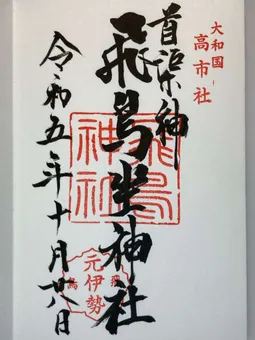 大和国
高市社
首渠神
飛鳥坐神社
飛鳥
神社
飛鳥
元伊勢
令和五年十月廿八日